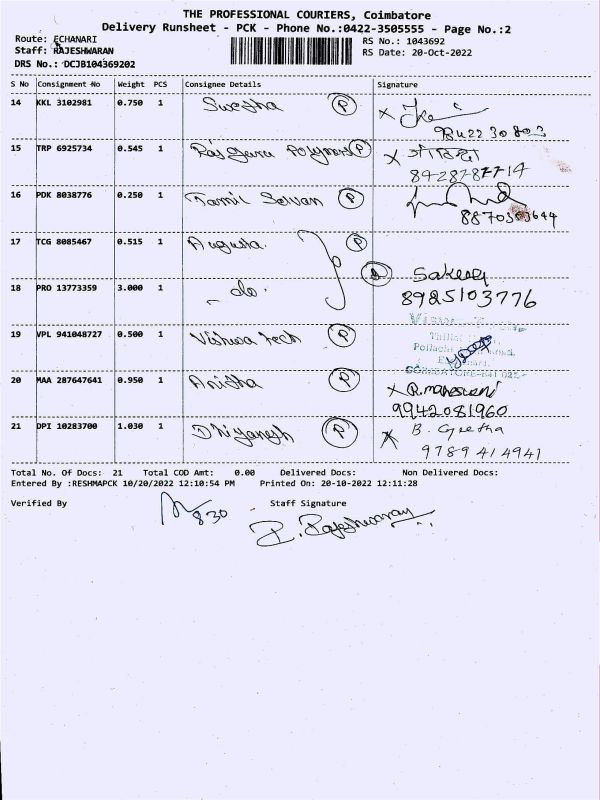 THE PROFESSIONAL COURIERS, Coimbatore
Delivery Runsheet - PCK - Phone No.:0422-3505555 - Page No.:2
Route: ECHANARI
RS No.: 1043692
Staff: RAJESHWARAN
RS Date: 20-Oct-2022
DRS No.: DCJB104369202
S No Consignment No Weight PCS Consignee Details Signature
14 KKL 3102981 0.750 1 Swetha P X
15 TRP 6925734 0.545 1 P X
8428787714
16 PDK 8038776 0.250 1 Tamil Selvan P
17 TCG 8085467 0.515 1 Augusta. P
18 PRO 13773359 3.000 1 - do - 8925103776
19 VPL 941048727 0.500 1 Vishwa tech P
20 MAA 287647641 0.950 1 Anitha P X R.maheswari
9942081960
21 DPI 10283700 1.030 1 Dhiyanesh P X B. Geetha
9789414941
Total No. Of Docs: 21 Total COD Amt: 0.00 Delivered Docs: Non Delivered Docs:
Entered By :RESHMAPCK 10/20/2022 12:10:54 PM Printed On: 20-10-2022 12:11:28
Verified By Staff Signature
830 P. Rajeshwaran